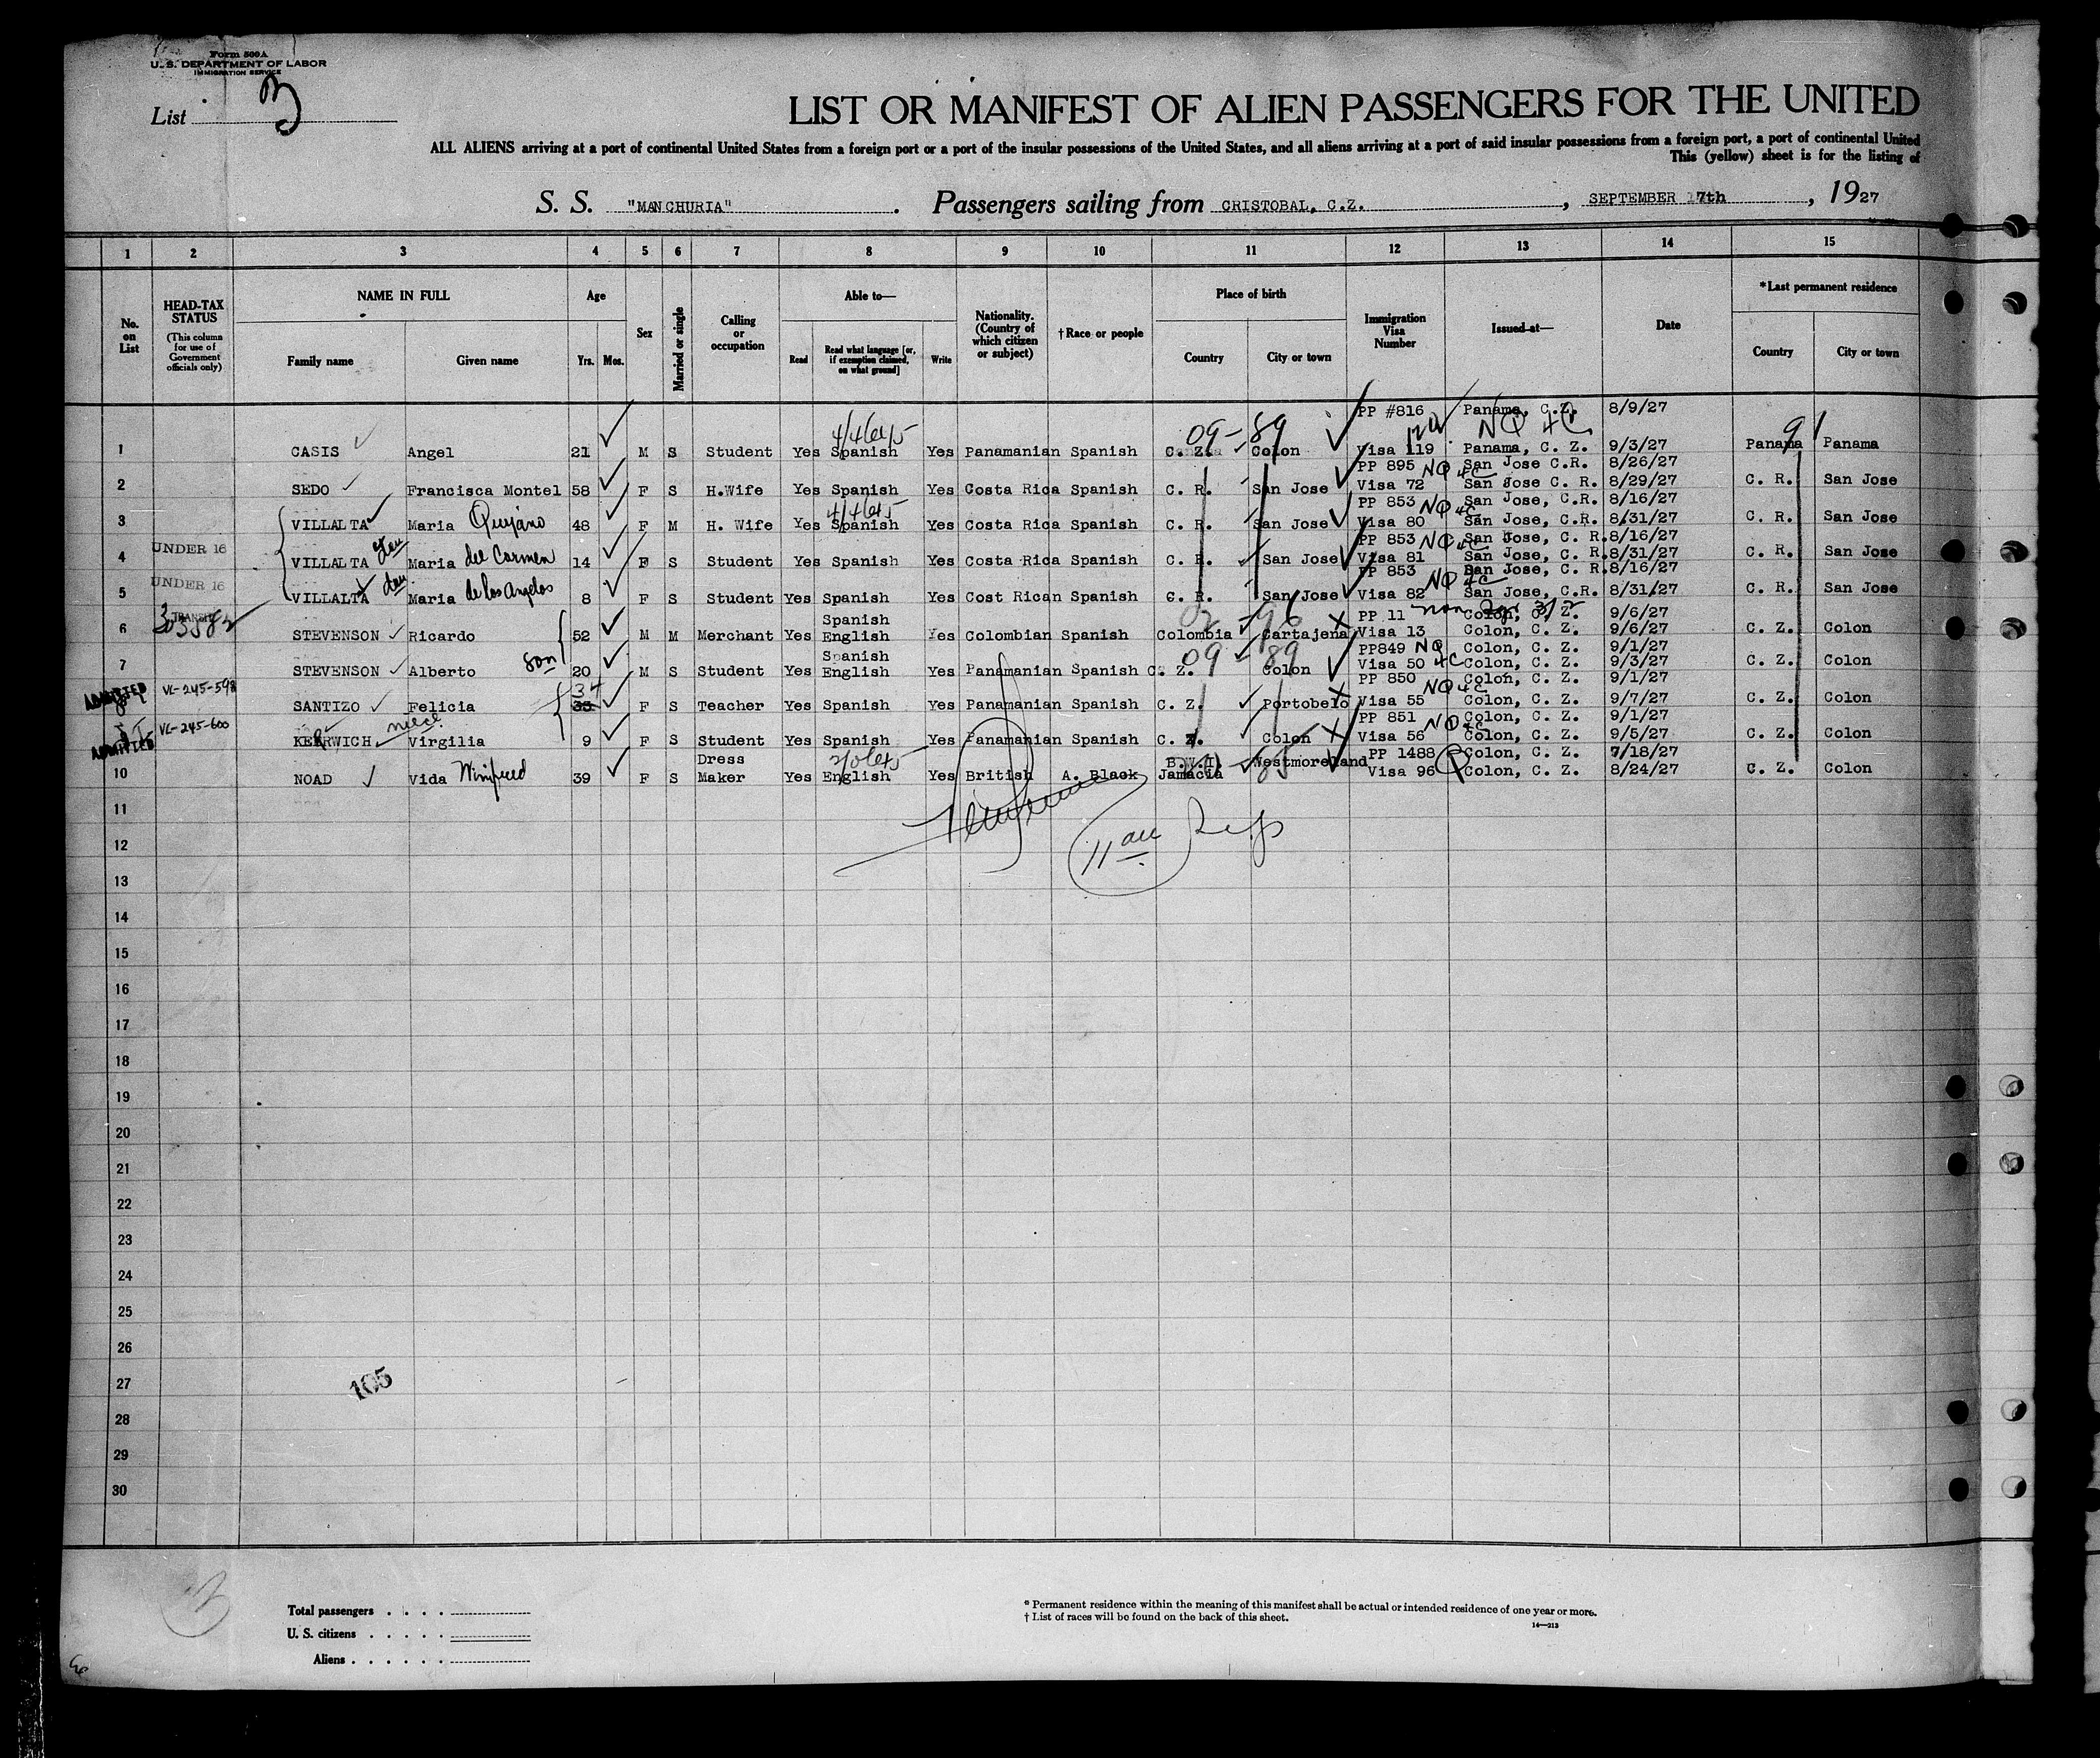 Form 500A
U. S. DEPARTMENT OF LABOR
IMMIGRATION SERVICE
List 3
LIST OR MANIFEST OF ALIEN PASSENGERS FOR THE UNITED
ALL ALIENS arriving at a port of continental United States from a foreign port or a port of the insular possessions of the United States, and all aliens arriving at a port of said insular possessions from a foreign port, a port of continental United
This (yellow) sheet is for the listing of
S. S. "MANCHURIA". Passengers sailing from CRISTOBAL, C.Z., SEPTEMBER 17th, 1927
1 2 3 4 5 6 7 8 9 10 11 12 13 14 15
No. on List
HEAD-TAX STATUS (This column for use of Government officials only)
NAME IN FULL Family name Given name
Age Yrs. Mos.
Sex
Married or single
Calling or occupation
Able to— Read Read what language [or, if exemption claimed, on what ground] Write
Nationality. (Country of which citizen or subject)
† Race or people
Place of birth Country City or town
Immigration Visa Number
Issued at—
Date
*Last permanent residence Country City or town
4/4/6415 09-89 PP #816 Panama, C.Z. 8/9/27
NQ 4C
1 CASIS Angel 21 M S Student Yes Spanish Yes Panamanian Spanish C. Z. Colon Visa 119 Panama, C. Z. 9/3/27 Panama Panama
PP 895 NQ 4C San Jose C.R. 8/26/27
2 SEDO Francisca Montel 58 F S H.Wife Yes Spanish Yes Costa Rica Spanish C. R. San Jose Visa 72 San Jose C. R. 8/29/27 C. R. San Jose
PP 853 NQ 4C San Jose, C.R. 8/16/27
3 VILLALTA Maria Quijano 48 F M H. Wife Yes Spanish Yes Costa Rica Spanish C. R. San Jose Visa 80 San Jose, C.R. 8/31/27 C. R. San Jose
UNDER 16 PP 853 NQ 4C San Jose, C. R. 8/16/27
4 VILLALTA Maria del Carmen 14 F S Student Yes Spanish Yes Costa Rica Spanish C. R. San Jose Visa 81 San Jose, C. R. 8/31/27 C. R. San Jose
UNDER 16 PP 853 NQ 4C San Jose, C. R. 8/16/27
5 VILLALTA Maria de los Angelos 8 F S Student Yes Spanish Yes Cost Rican Spanish C. R. San Jose Visa 82 San Jose, C.R. 8/31/27 C. R. San Jose
TRANSIT Spanish PP 11 Colon, C. Z. 9/6/27
6 STEVENSON Ricardo 52 M M Merchant Yes English Yes Colombian Spanish Colombia Cartajena Visa 13 Colon, C. Z. 9/6/27 C. Z. Colon
son Spanish 09 89 PP849 NQ 4C Colon, C. Z. 9/1/27
7 STEVENSON Alberto 20 M S Student Yes English Yes Panamanian Spanish C. Z. Colon Visa 50 Colon, C. Z. 9/3/27 C. Z. Colon
ADMITTED VL-245-598 34 PP 850 NQ 4C Colon, C. Z. 9/1/27
SANTIZO Felicia 35 F S Teacher Yes Spanish Yes Panamanian Spanish C. Z. Portobelo Visa 55 Colon, C. Z. 9/7/27 C. Z. Colon
ADMITTED VL-245-600 niece PP 851 NQ 4C Colon, C. Z. 9/1/27
KERRWICH Virgilia 9 F S Student Yes Spanish Yes Panamanian Spanish C. Z. Colon Visa 56 Colon, C. Z. 9/5/27 C. Z. Colon
Dress B.W.I. Westmoreland PP 1488 Q Colon, C. Z. 7/18/27
10 NOAD Vida Winifred 39 F S Maker Yes English Yes British A. Black Jamacia Visa 96 Colon, C. Z. 8/24/27 C. Z. Colon
11
12
13
14
15
16
17
18
19
20
21
22
23
24
25
26
27 105
28
29
30
3
Total passengers
U. S. citizens
Aliens
* Permanent residence within the meaning of this manifest shall be actual or intended residence of one year or more.
† List of races will be found on the back of this sheet.
14—213